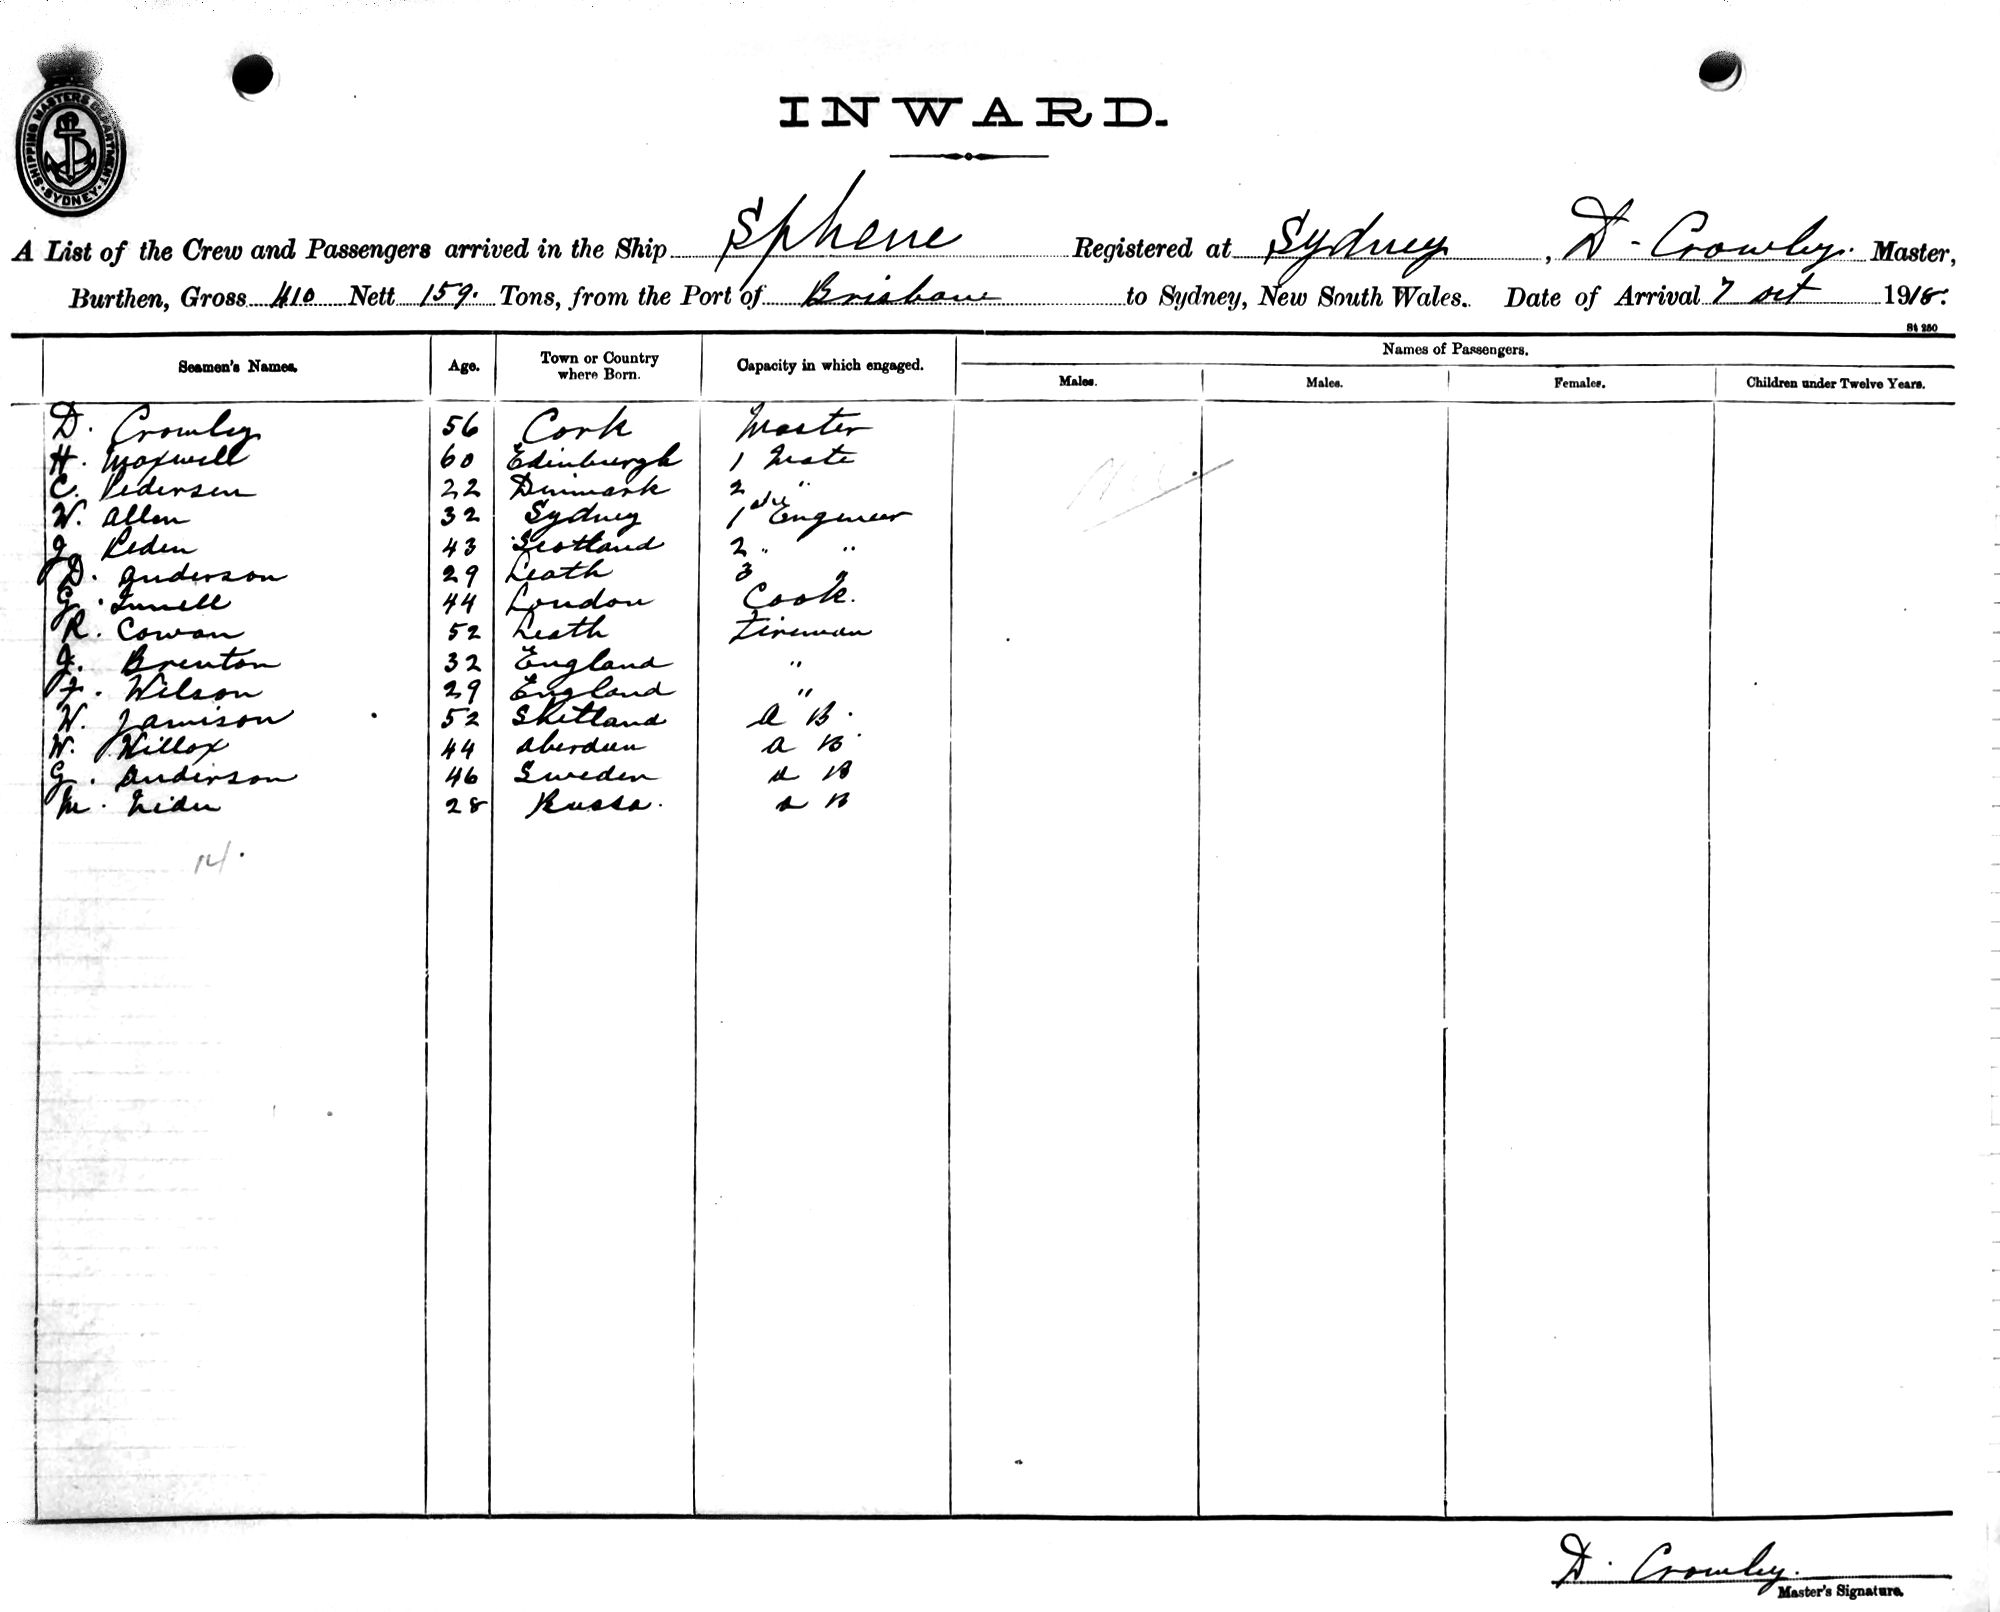 SHIPPING MASTERS DEPARTMENT
SYDNEY
INWARD.
A List of the Crew and Passengers arrived in the Ship Sphene Registered at Sydney, D. Crowley. Master,
Burthen, Gross 410 Nett 159. Tons, from the Port of Brisbane to Sydney, New South Wales. Date of Arrival 7 Oct 1918.
St 250
Seamen's Names. Age. Town or Country where Born. Capacity in which engaged. Names of Passengers.
Males. Males. Females. Children under Twelve Years.
D. Crowley 56 Cork Master
H. Maxwell 60 Edinburgh 1 Mate
C. Pedersen 22 Dinmark 2 "
Nil.
W. Allen 32 Sydney 1 Engineer
J Peden 43 Scotland 2 " "
D. Anderson 29 Leath 3 "
G. 44 London Cook.
R. Cowan 52 Leath Fireman
J. Brenton 32 England "
F. Wilson 29 England "
W. Jamison 52 Shetland A B.
W. Willox 44 Aberdeen A B.
G. Anderson 46 Sweden A B
M. 28 Russa. A B
14.
D. Crowley.
Master's Signature.